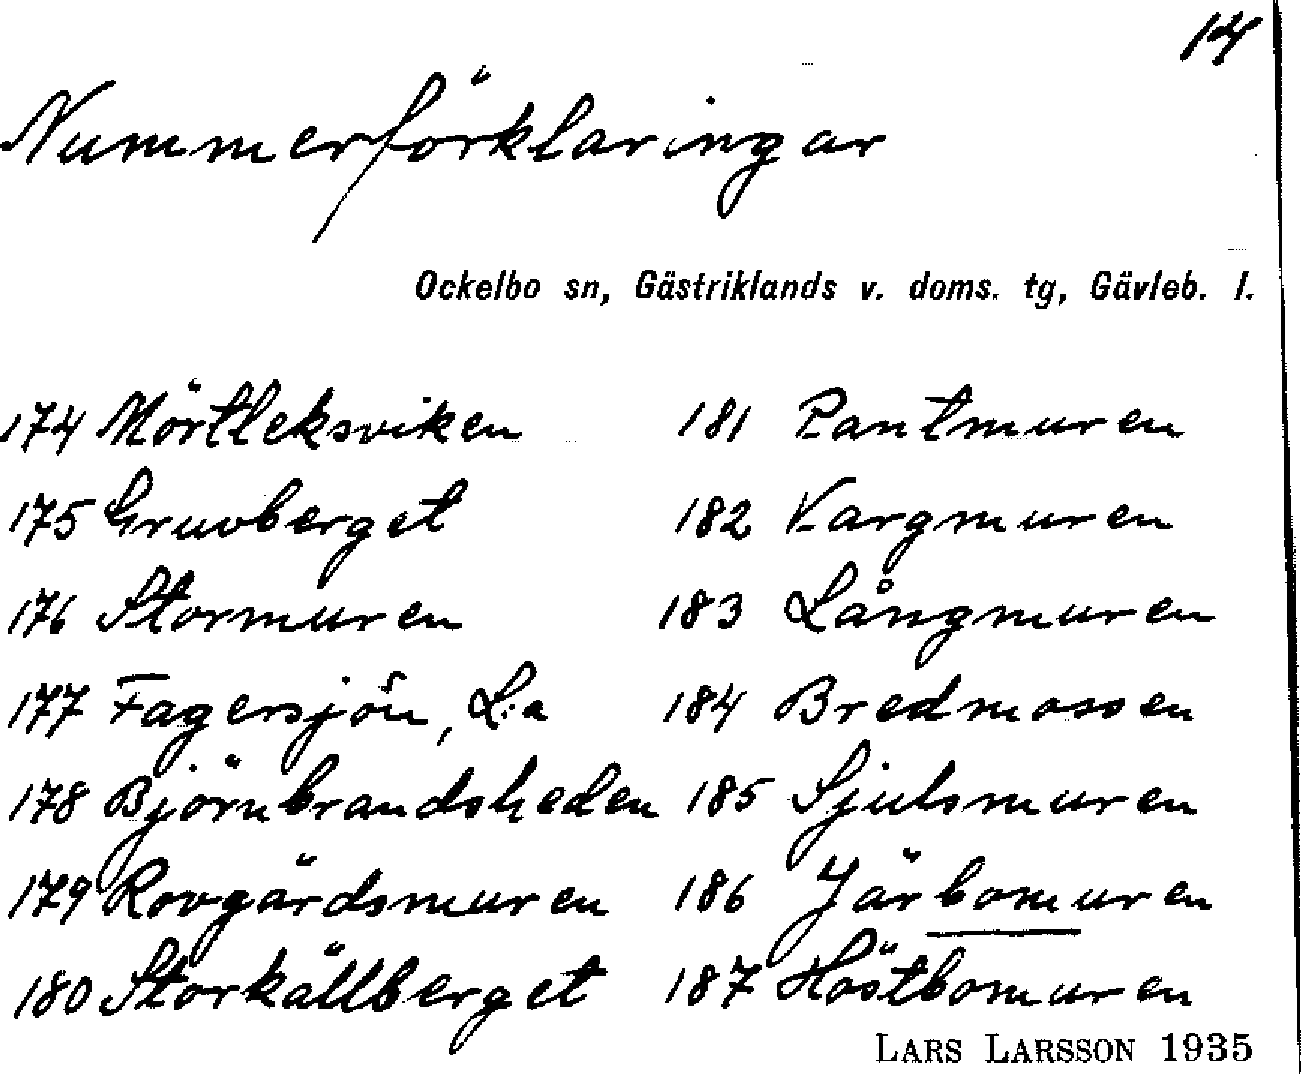 14
Nummerförklaringar
Ockelbo sn, Gästriklands v. doms. tg, Gävleb. l.
174 Mörtleksviken 181 Pantmuren
175 Gruvberget 182 Vargmuren
176 Stormuren 183 Långmuren
177 Fagersjön, L:a 184 Bredmossen
178 Björnbrandsheden 185 Sjulsmuren
179 Rovgärdsmuren 186 Järbomuren
180 Storkällberget 187 Höstbomuren
LARS LARSSON 1935